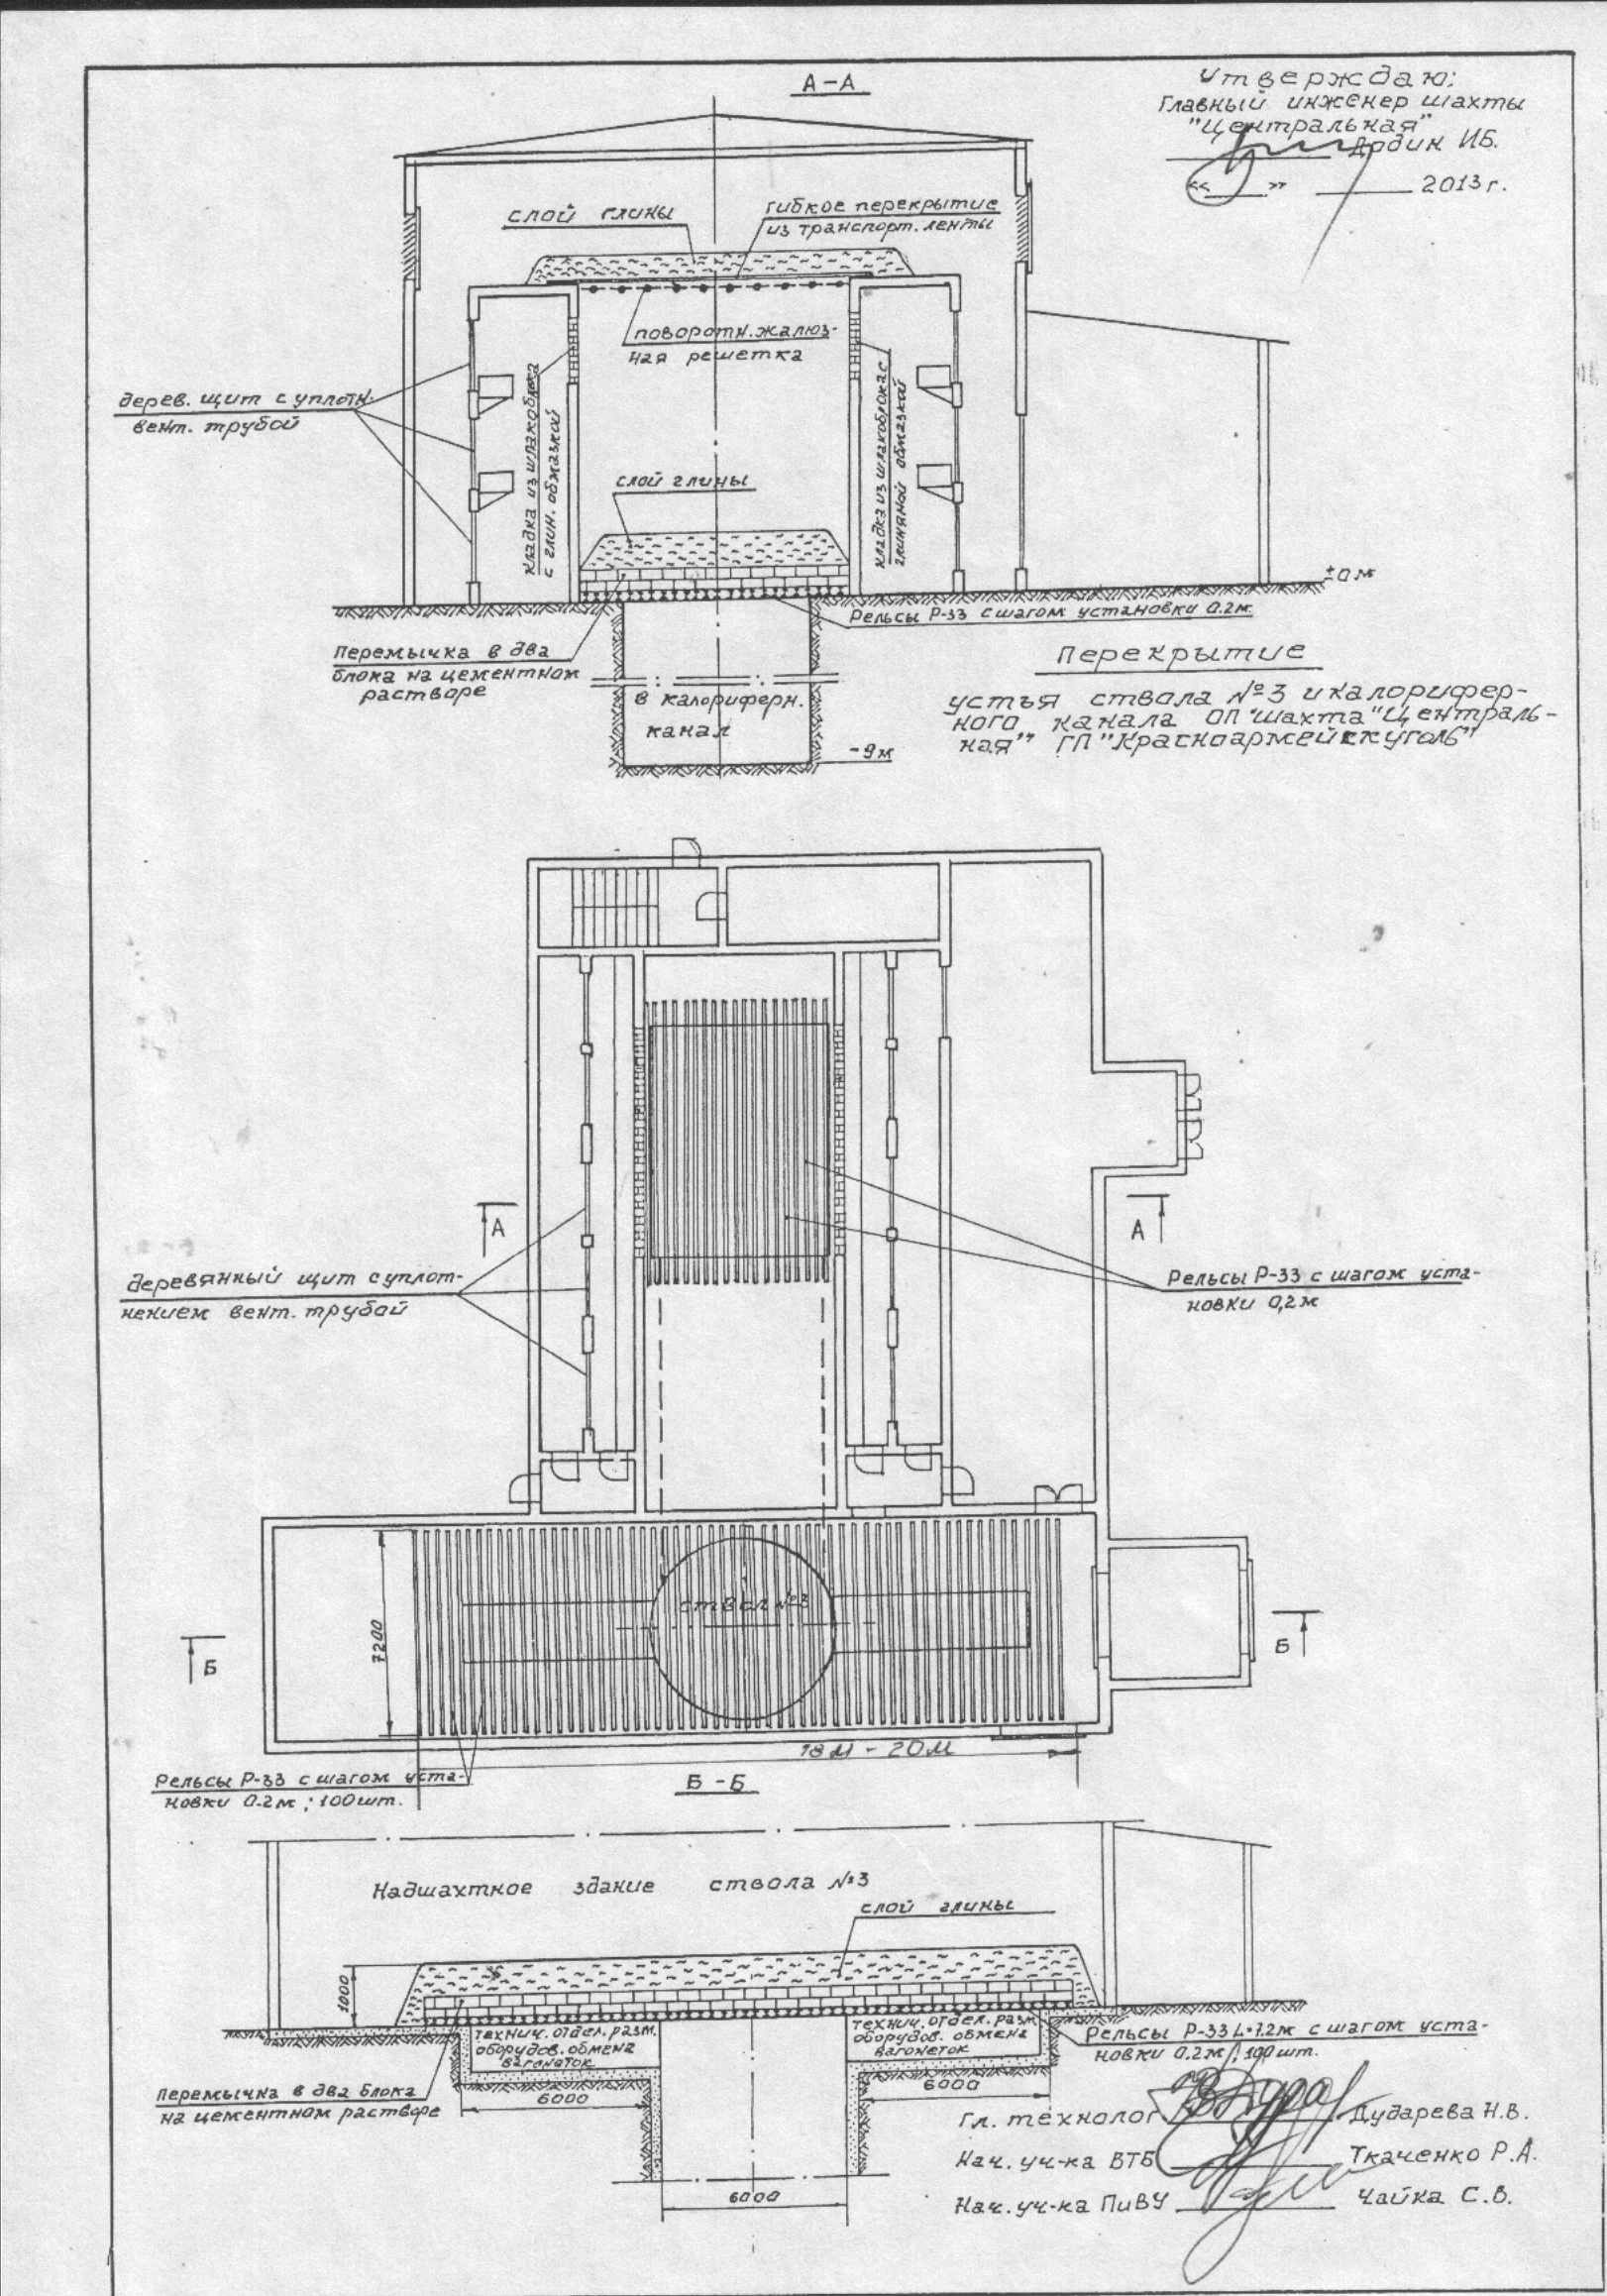 А-А
Утверждаю:
Главный инженер шахты
"Центральная"
Ардин И.Б.
«__» ______ 2013 г.
слой глины
гибкое перекрытие
из транспорт. ленты
поворотн. жалюз-
ная решетка
дерев. щит с уплотн.
вент. трубой
кладка из шлакоблока
с глин. обмазкой
кладка из шлакоблока с
глиняной обмазкой
слой глины
±0 м
Рельсы Р-33 с шагом установки 0.2м
Перемычка в два
блока на цементном
растворе
в калориферн.
канал
-9м
Перекрытие
устья ствола №3 и калорифер-
ного канала ОП "шахта "Централь-
ная" ГП "Красноармейскуголь"
А
А
деревянный щит с уплот-
нением вент. трубой
Рельсы Р-33 с шагом уста-
новки 0,2м
7200
ствол №3
Б
Б
18м - 20м
Рельсы Р-33 с шагом уста-
новки 0.2м ; 100шт.
Б-Б
Надшахтное здание ствола №3
слой глины
1000
технич. отдел. разм.
оборудов. обмена
вагонеток
технич. отдел. разм.
оборудов. обмена
вагонеток
Рельсы Р-33 L-7.2м с шагом уста-
новки 0.2м ; 100шт.
Перемычка в два блока
на цементном растворе
6000
6000
6000
Гл. технолог Дударева Н.В.
Нач. уч-ка ВТБ Ткаченко Р.А.
Нач. уч-ка ПиВУ Чайка С.В.